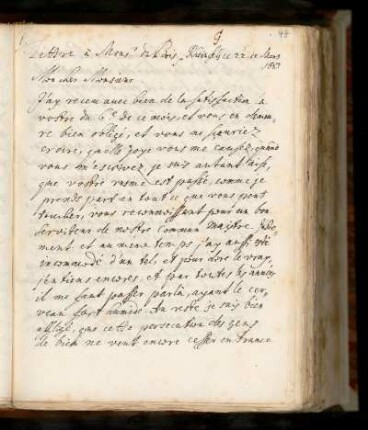 9
44
Lettre à Monsr du Bois
1687
Mon cher Monsieur
J'ay receu avec bien de la satisfaction la
vostre du 6e de ce mois, et vous en demeu-
re bien obligé, et vous ne sçauriez
croire, quelle joye vous me causez, quand
vous m'escrivez. je suis autant aise,
que vostre rume est passé, comme je
prends part en tout ce que vous peut
toucher, vous reconnoissant pour un bon
serviteur de nostre commun maistre.
ment et au mene temps j'ay aussi esté
incommodé d'un tel, et pour dire le vray,
j'en tiens encores, et par toutes les années
il me faut passer par là, ayant le cer-
veau fort humide. Au reste je suis bien
affligé, que cette persecution des gens
de bien ne veut encore cesser en France